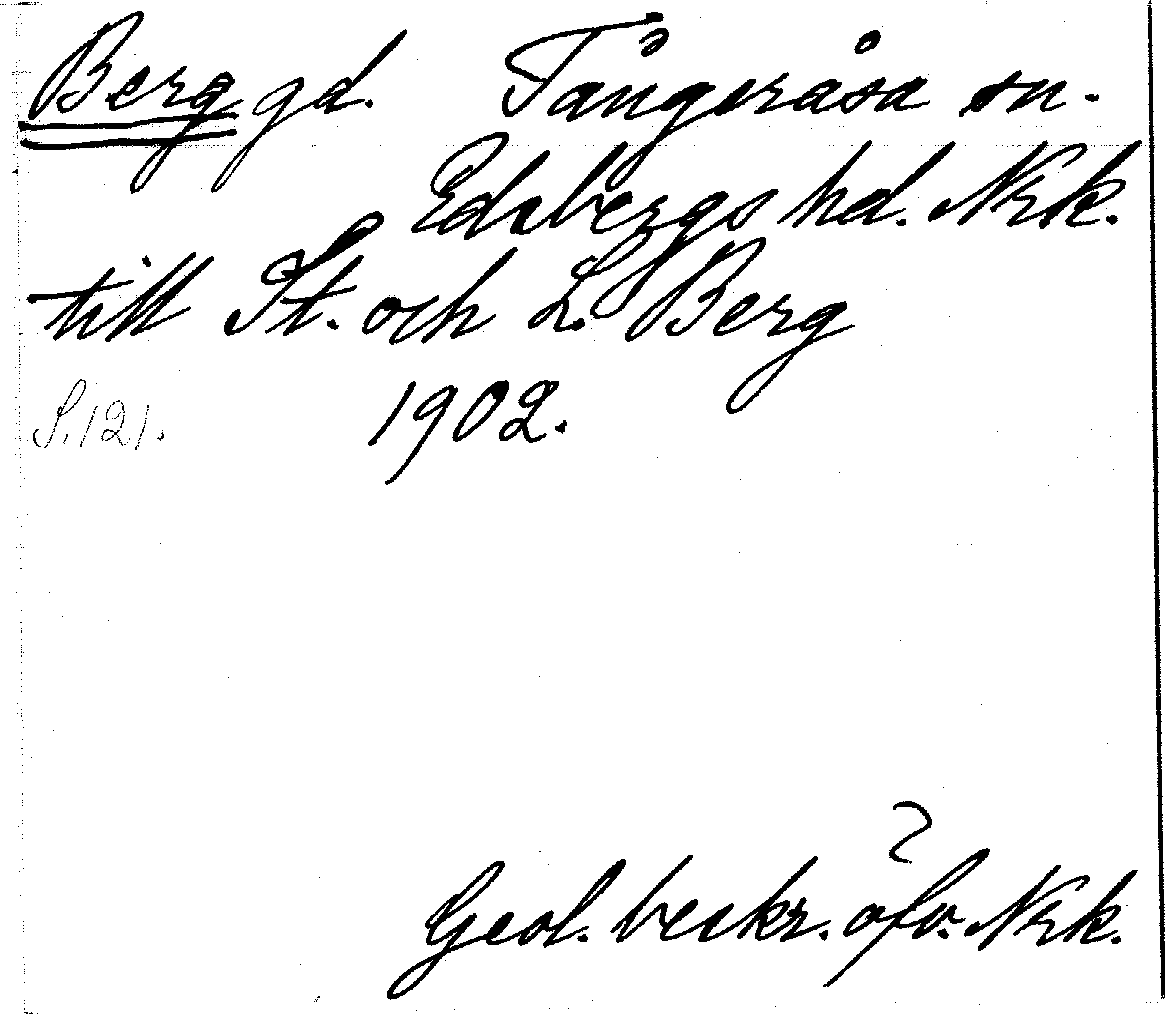 Berg gd. Tångeråsa sn.
Edsbergs hd. Nrk.
till St. och L. Berg
S. 121. 1902.
Geol. beskr. öfv. Nrk.